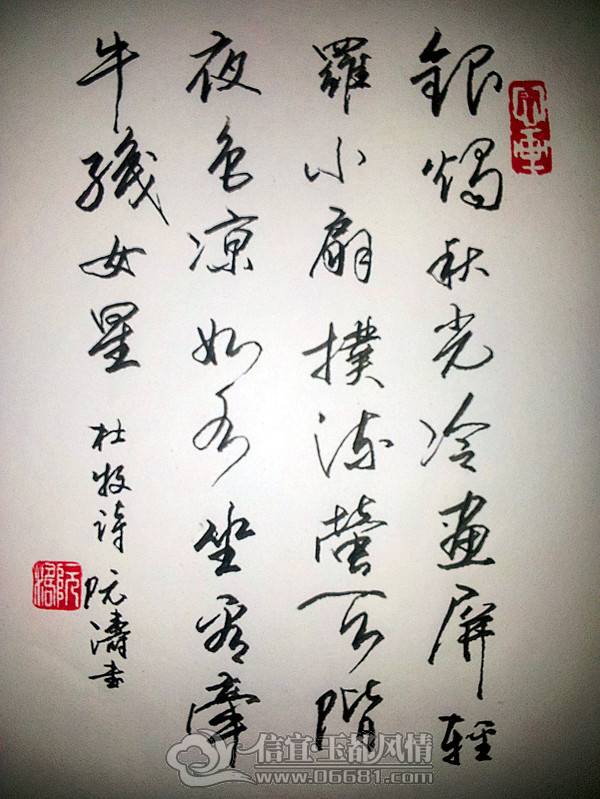 銀燭秋光冷畫屏輕
羅小扇撲流螢天階
夜色凉如水坐看牽
牛織女星 杜牧詩 阮濤書
信宜玉都风情
www.06681.com